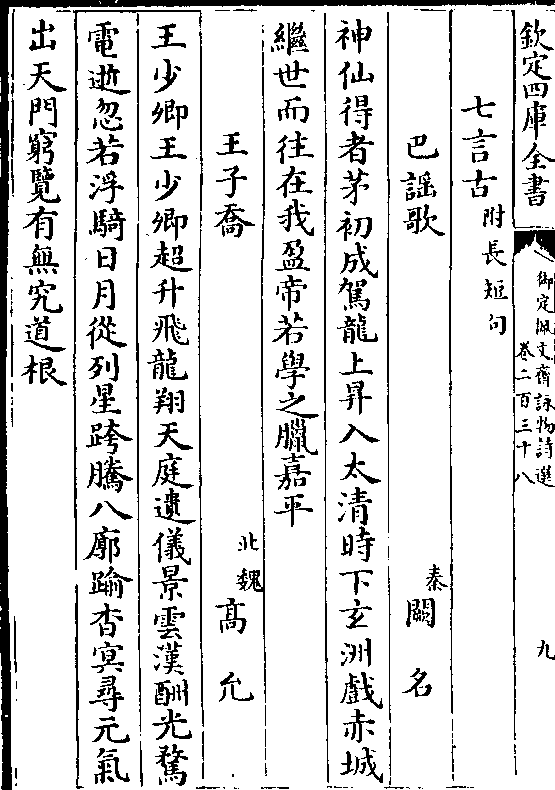 欽定四庫全書
御定佩文齋詠物詩選
卷二百三十八
九
七言古附長短句
巴謡歌 秦闕名
神仙得者茅初成駕龍上昇入太清時下玄洲戲赤城
繼世而往在我盈帝若學之臘嘉平
王子喬 北魏高允
王少卿王少卿超升飛龍翔天庭遺儀景雲漢酬光騖
電逝忽若浮騎日月從列星跨騰八廓踰杳冥尋元氣
出天門窮覽有無究道根